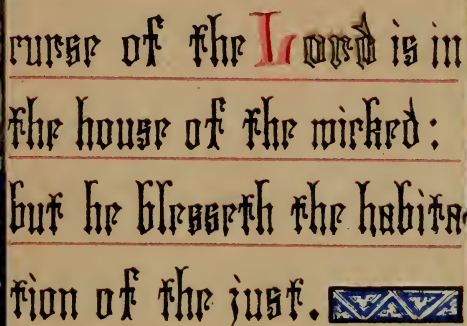 curse of the Lord is in
the house of the wicked:
but he blesseth the habita-
tion of the just.